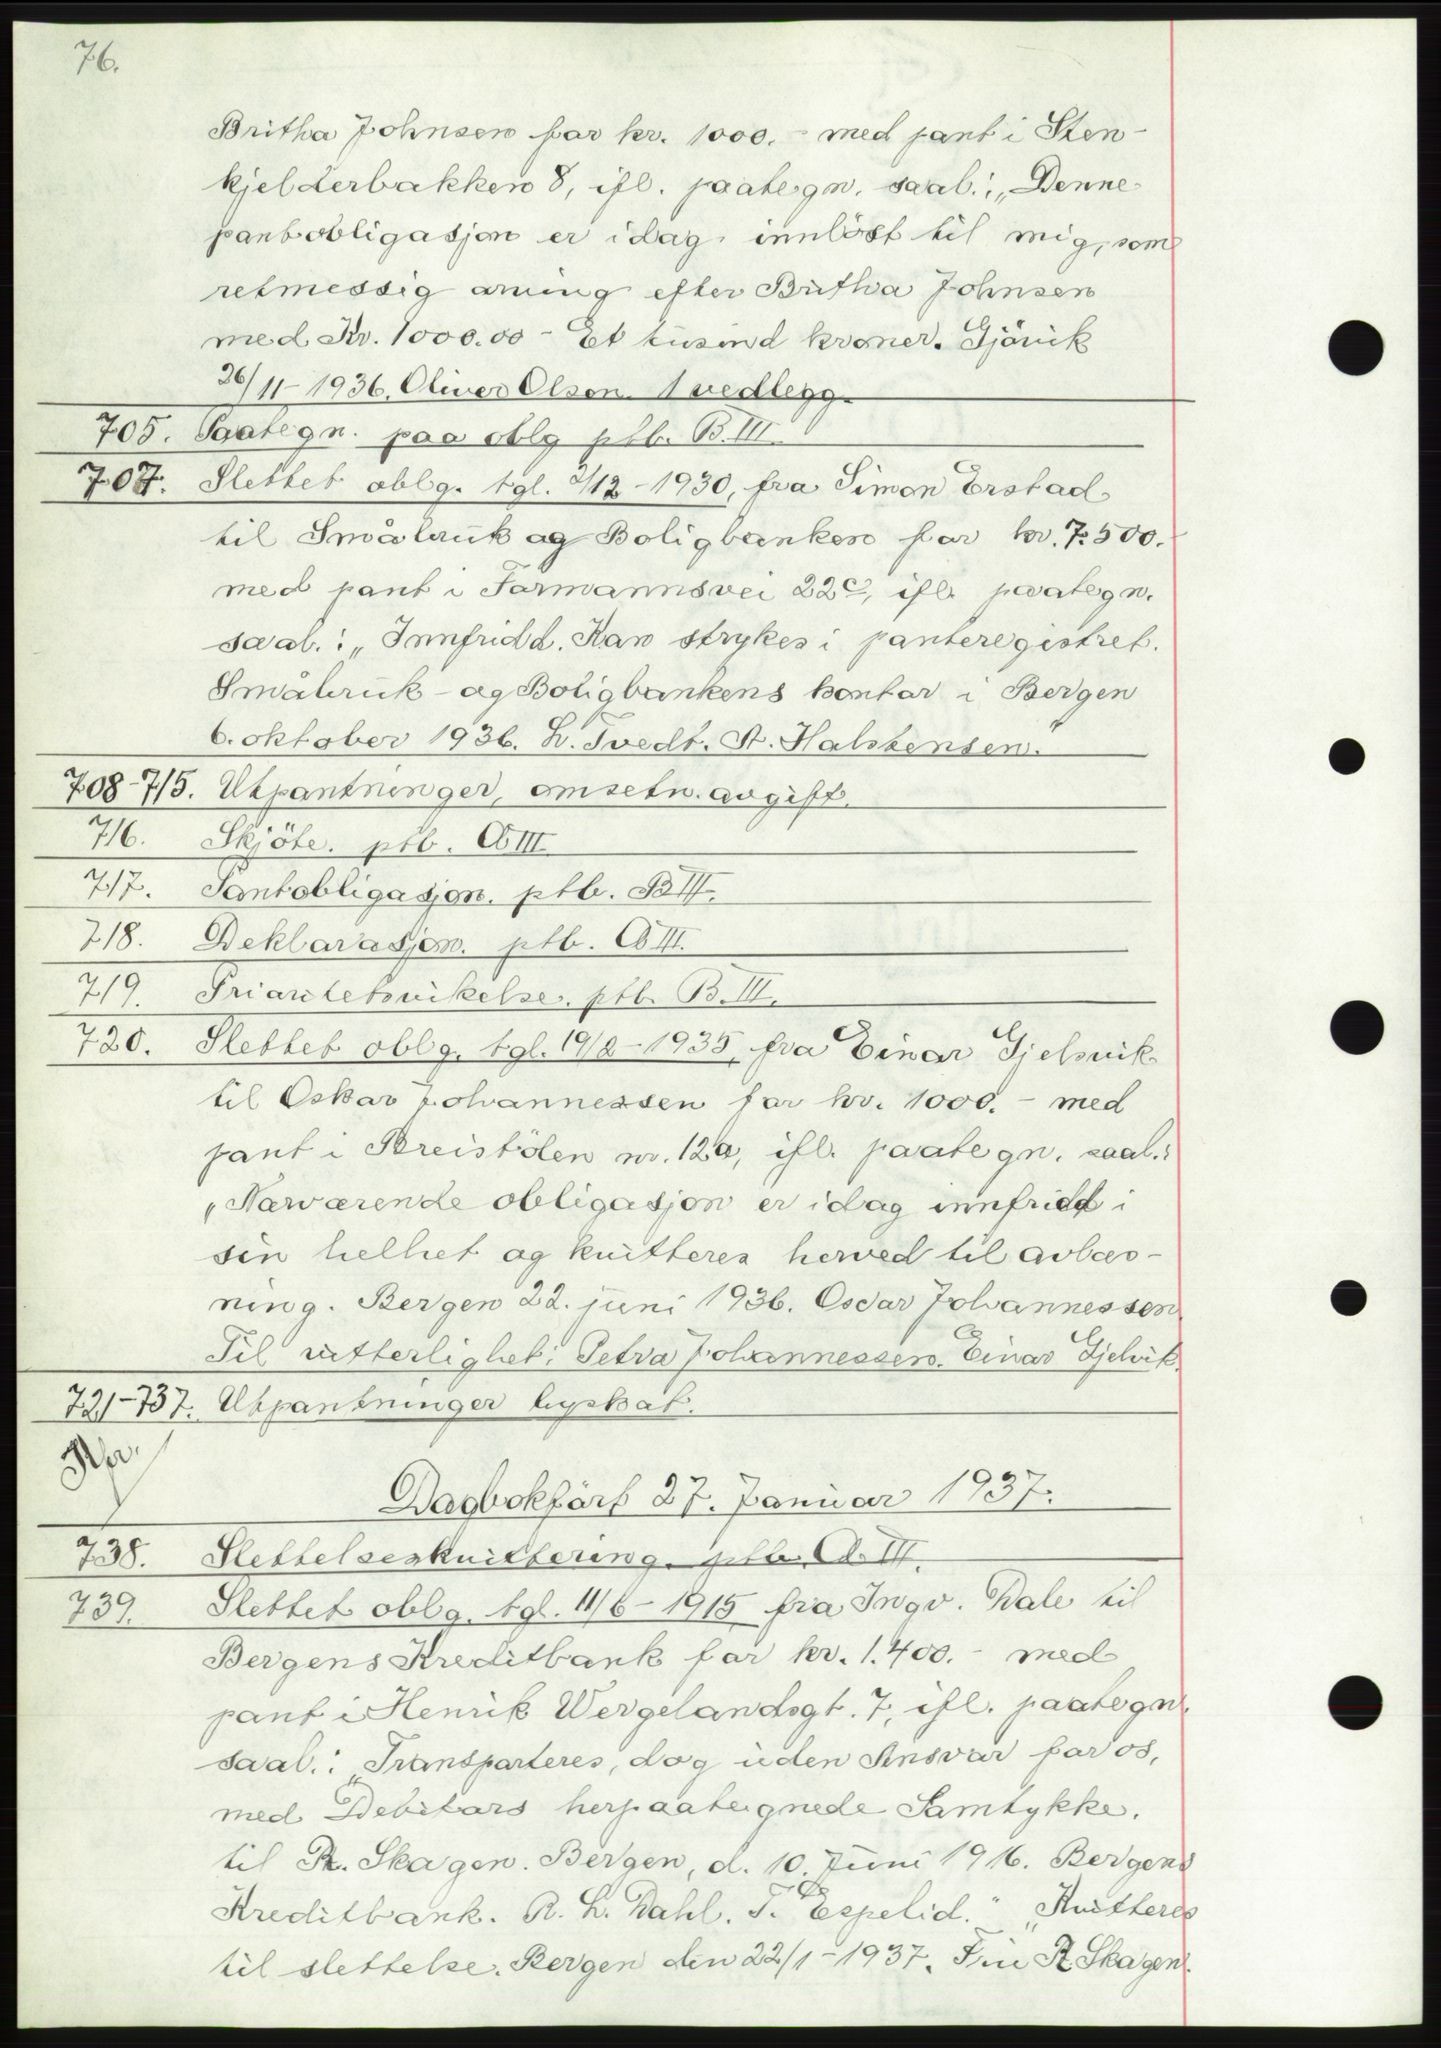 76.
Britha Johnsen for kr. 1000.- med pant i Sten-
kjelderbakken 8, ifl. paategn. saal.: „Denne
pantobligasjon er idag innløst til mig, som
retmessig arving efter Britha Johnsen
med Kr. 1000.00 - Et tusind kroner. Gjövik
26/11-1936. Oliver Olsen. 1 vedlegg.
705. Paategn. paa oblg ptb. B. III.
707. Slettet oblg. tgl. 2/12-1930, fra Simon Erstad
til Småbruk og Boligbanken for kr. 7.500.
med pant i Formannsvei 22c, ifl. paategn.
saal.: „Innfridd. Kan strykes i panteregistret.
Småbruk- og Boligbankens kontor i Bergen
6. oktober 1936. L. Tvedt. A. Halstensen."
708-715. Utpantninger, omsetn. avgift.
716. Skjöte. ptb. A III.
717. Pantobligasjon. ptb. B III.
718. Deklarasjon. ptb. A III.
719. Prioritetsvikelse. ptb. B. III.
720. Slettet oblg. tgl. 19/2-1935, fra Einar Gjelsvik
til Oskar Johannessen for kr. 1000.- med
pant i Breistölen nr. 12a, ifl. paategn. saal.:
„Nærværende obligasjon er idag innfridd i
sin helhet og kvitteres herved til avlæs-
ning. Bergen 22. juni 1936. Oscar Johannessen
Til vitterlighet: Petra Johannessen. Einar Gjelsvik.
721-737. Utpantninger byskat.
Dagbokfört 27. Januar 1937.
738. Slettelseskvittering. ptb. A. III.
739. Slettet oblg. tgl. 11/6-1915 fra Ingv. Dale til
Bergens Kreditbank for kr. 1.400.- med
pant i Henrik Wergelandsgt. 7, ifl. paategn.
saal.: „Transporteres, dog uden Ansvar for os,
med Debitors herpaategnede Samtykke.
til R. Skagen. Bergen, d. 10. Juni 1916. Bergens
Kreditbank. R. L. Dahl. T. Espelid." „Kvitteres
til slettelse. Bergen den 22/1-1937. R. Skagen.